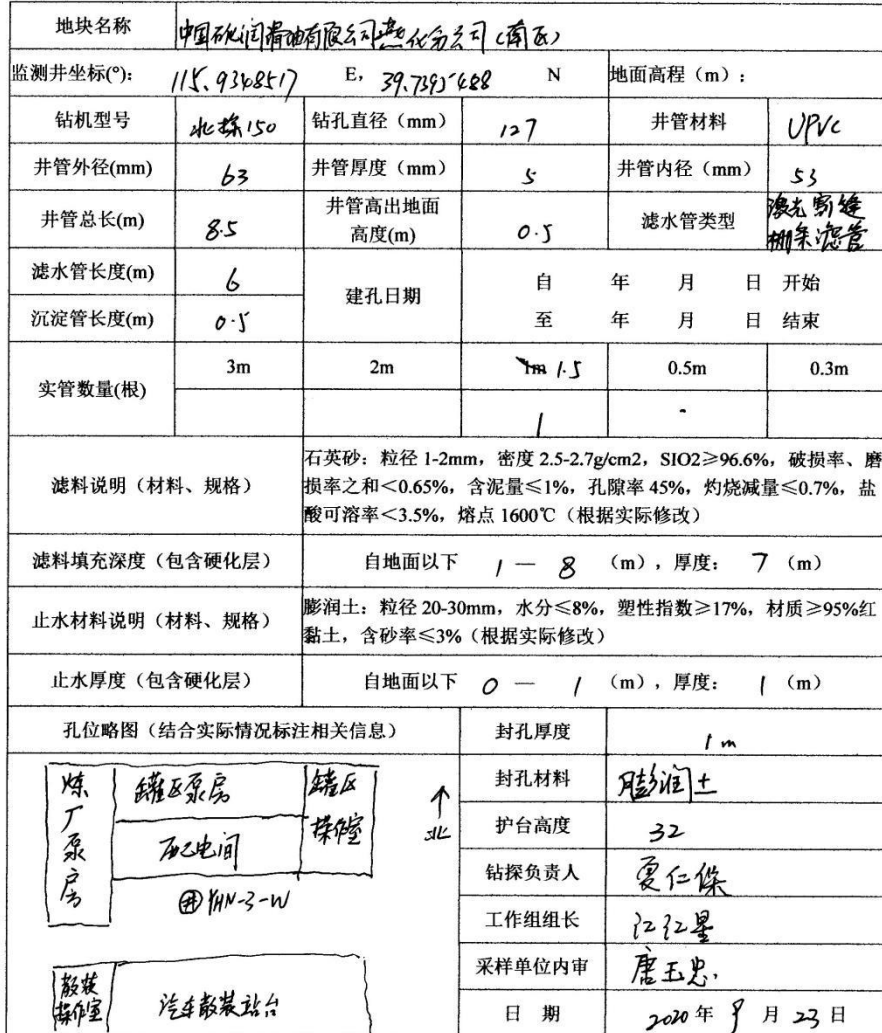 地块名称 中国石化润滑油有限公司燕化分公司（南区）
监测井坐标(°): 115.9348517 E, 39.7395488 N 地面高程（m）:
钻机型号 北探150 钻孔直径（mm） 127 井管材料 UPVC
井管外径(mm) 63 井管厚度（mm） 5 井管内径（mm） 53
井管总长(m) 8.5 井管高出地面 高度(m) 0.5 滤水管类型 激光割缝
棚条滤管
滤水管长度(m) 6 建孔日期 自 年 月 日 开始
沉淀管长度(m) 0.5 至 年 月 日 结束
实管数量(根) 3m 2m 1m 1.5 0.5m 0.3m
1
滤料说明（材料、规格） 石英砂：粒径 1-2mm，密度 2.5-2.7g/cm2，SIO2≥96.6%，破损率、磨
损率之和＜0.65%，含泥量≤1%，孔隙率 45%，灼烧减量≤0.7%，盐
酸可溶率＜3.5%，熔点 1600℃（根据实际修改）
滤料填充深度（包含硬化层） 自地面以下 1 — 8 （m），厚度： 7 （m）
止水材料说明（材料、规格） 膨润土：粒径 20-30mm，水分≤8%，塑性指数≥17%，材质≥95%红
黏土，含砂率≤3%（根据实际修改）
止水厚度（包含硬化层） 自地面以下 0 — 1 （m），厚度： 1 （m）
孔位略图（结合实际情况标注相关信息） 封孔厚度 1m
炼厂泵房 罐区泵房 罐区操作室 ↑北
配电间
井 YHN-3-W
散装操作室 汽车散装站台
封孔材料 膨润土
护台高度 32
钻探负责人 夏仁保
工作组组长 江红星
采样单位内审 唐玉忠.
日 期 2020 年 9 月 23 日